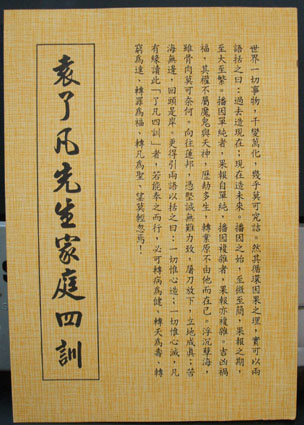 世界一切事物，千變萬化，幾乎莫可究詰。然其循環因果之理，實可以兩
語括之曰：過去造現在；現在造未來。播因之始，至微至簡，果報之期，
至大至繁。播因單純者，果報自單純，播因複雜者，果報亦複雜。吉凶禍
福，其權不屬魔鬼與天神，歷劫多生，轉業原不由他而在己。浮沉孽海，
雖骨肉莫可奈何。向往蓮邦，憑堅誠無難力致，屠刀放下，立地成真；苦
海無邊，回頭是岸。更得引兩語以括之曰：一切惟心造；一切惟心滅。凡
有緣讀此「了凡四訓」者，若能奉之而行，必可轉病為健、轉夭為壽、轉
窮為達、轉罪為福、轉凡為聖、莫輕忽焉！
袁了凡先生家庭四訓